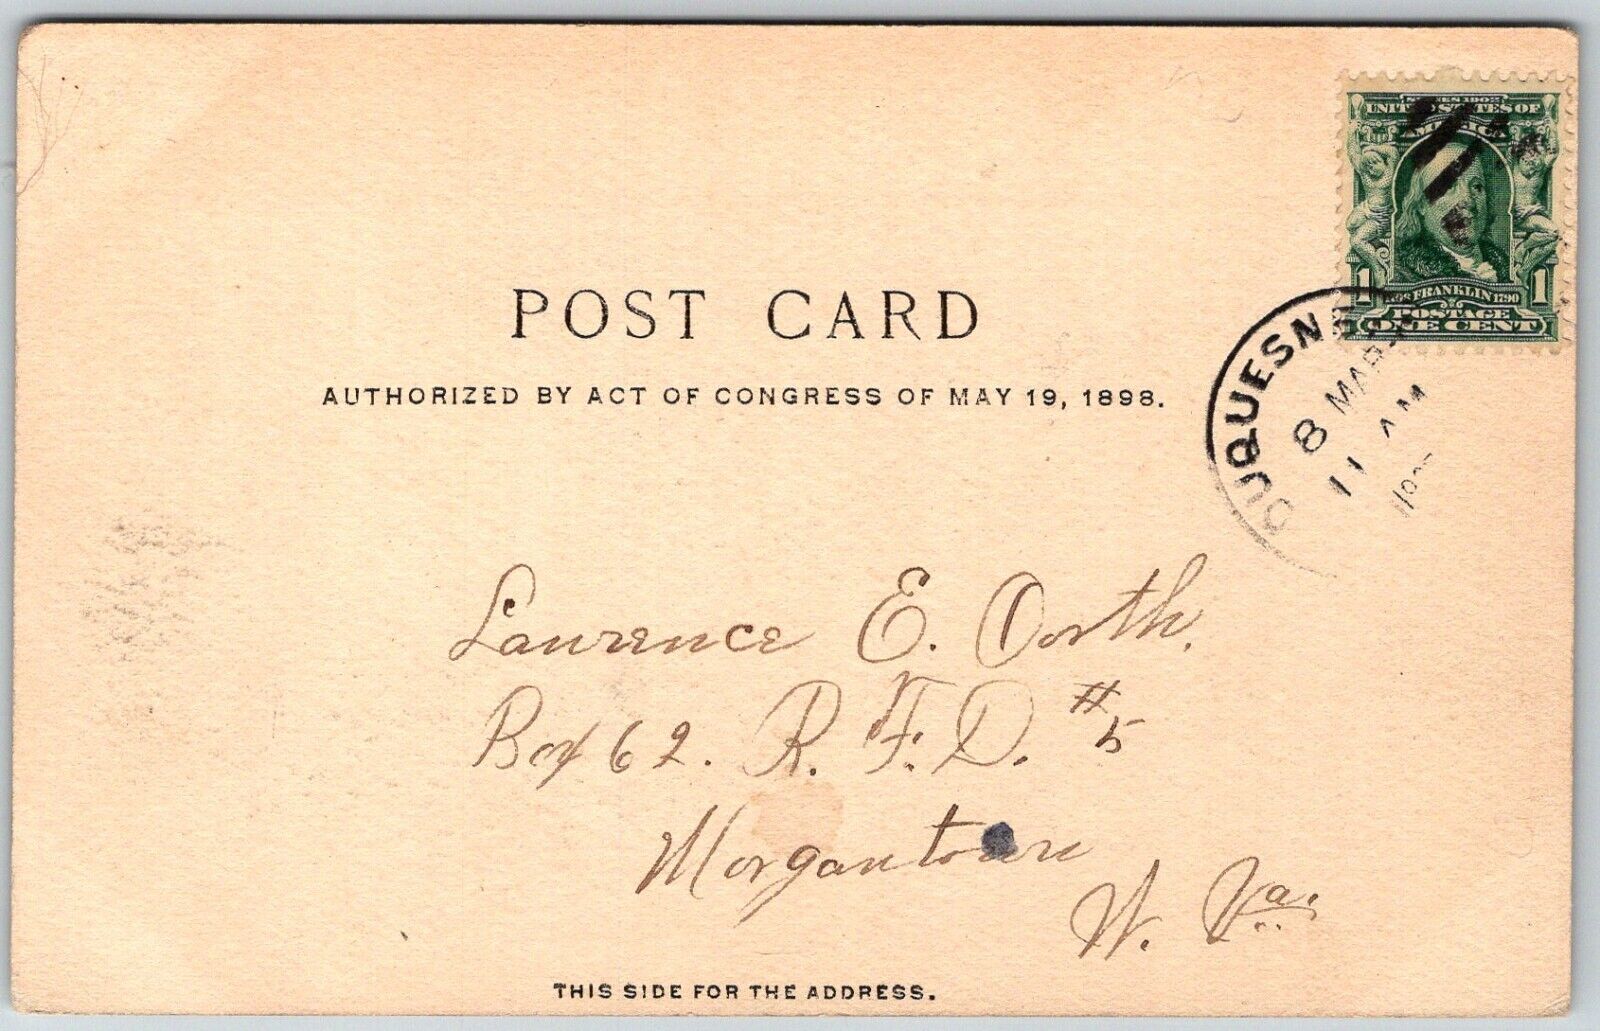 SERIES 1902
UNITED STATES OF
AMERICA
1 FRANKLIN 1790 1
POSTAGE
ONE CENT
POST CARD
AUTHORIZED BY ACT OF CONGRESS OF MAY 19, 1898.
DUQUESNE
8 MAR
11 AM
Lawrence E. Orth.
Box 62. R. F. D. # 5
Morgantown
W. Va.
THIS SIDE FOR THE ADDRESS.